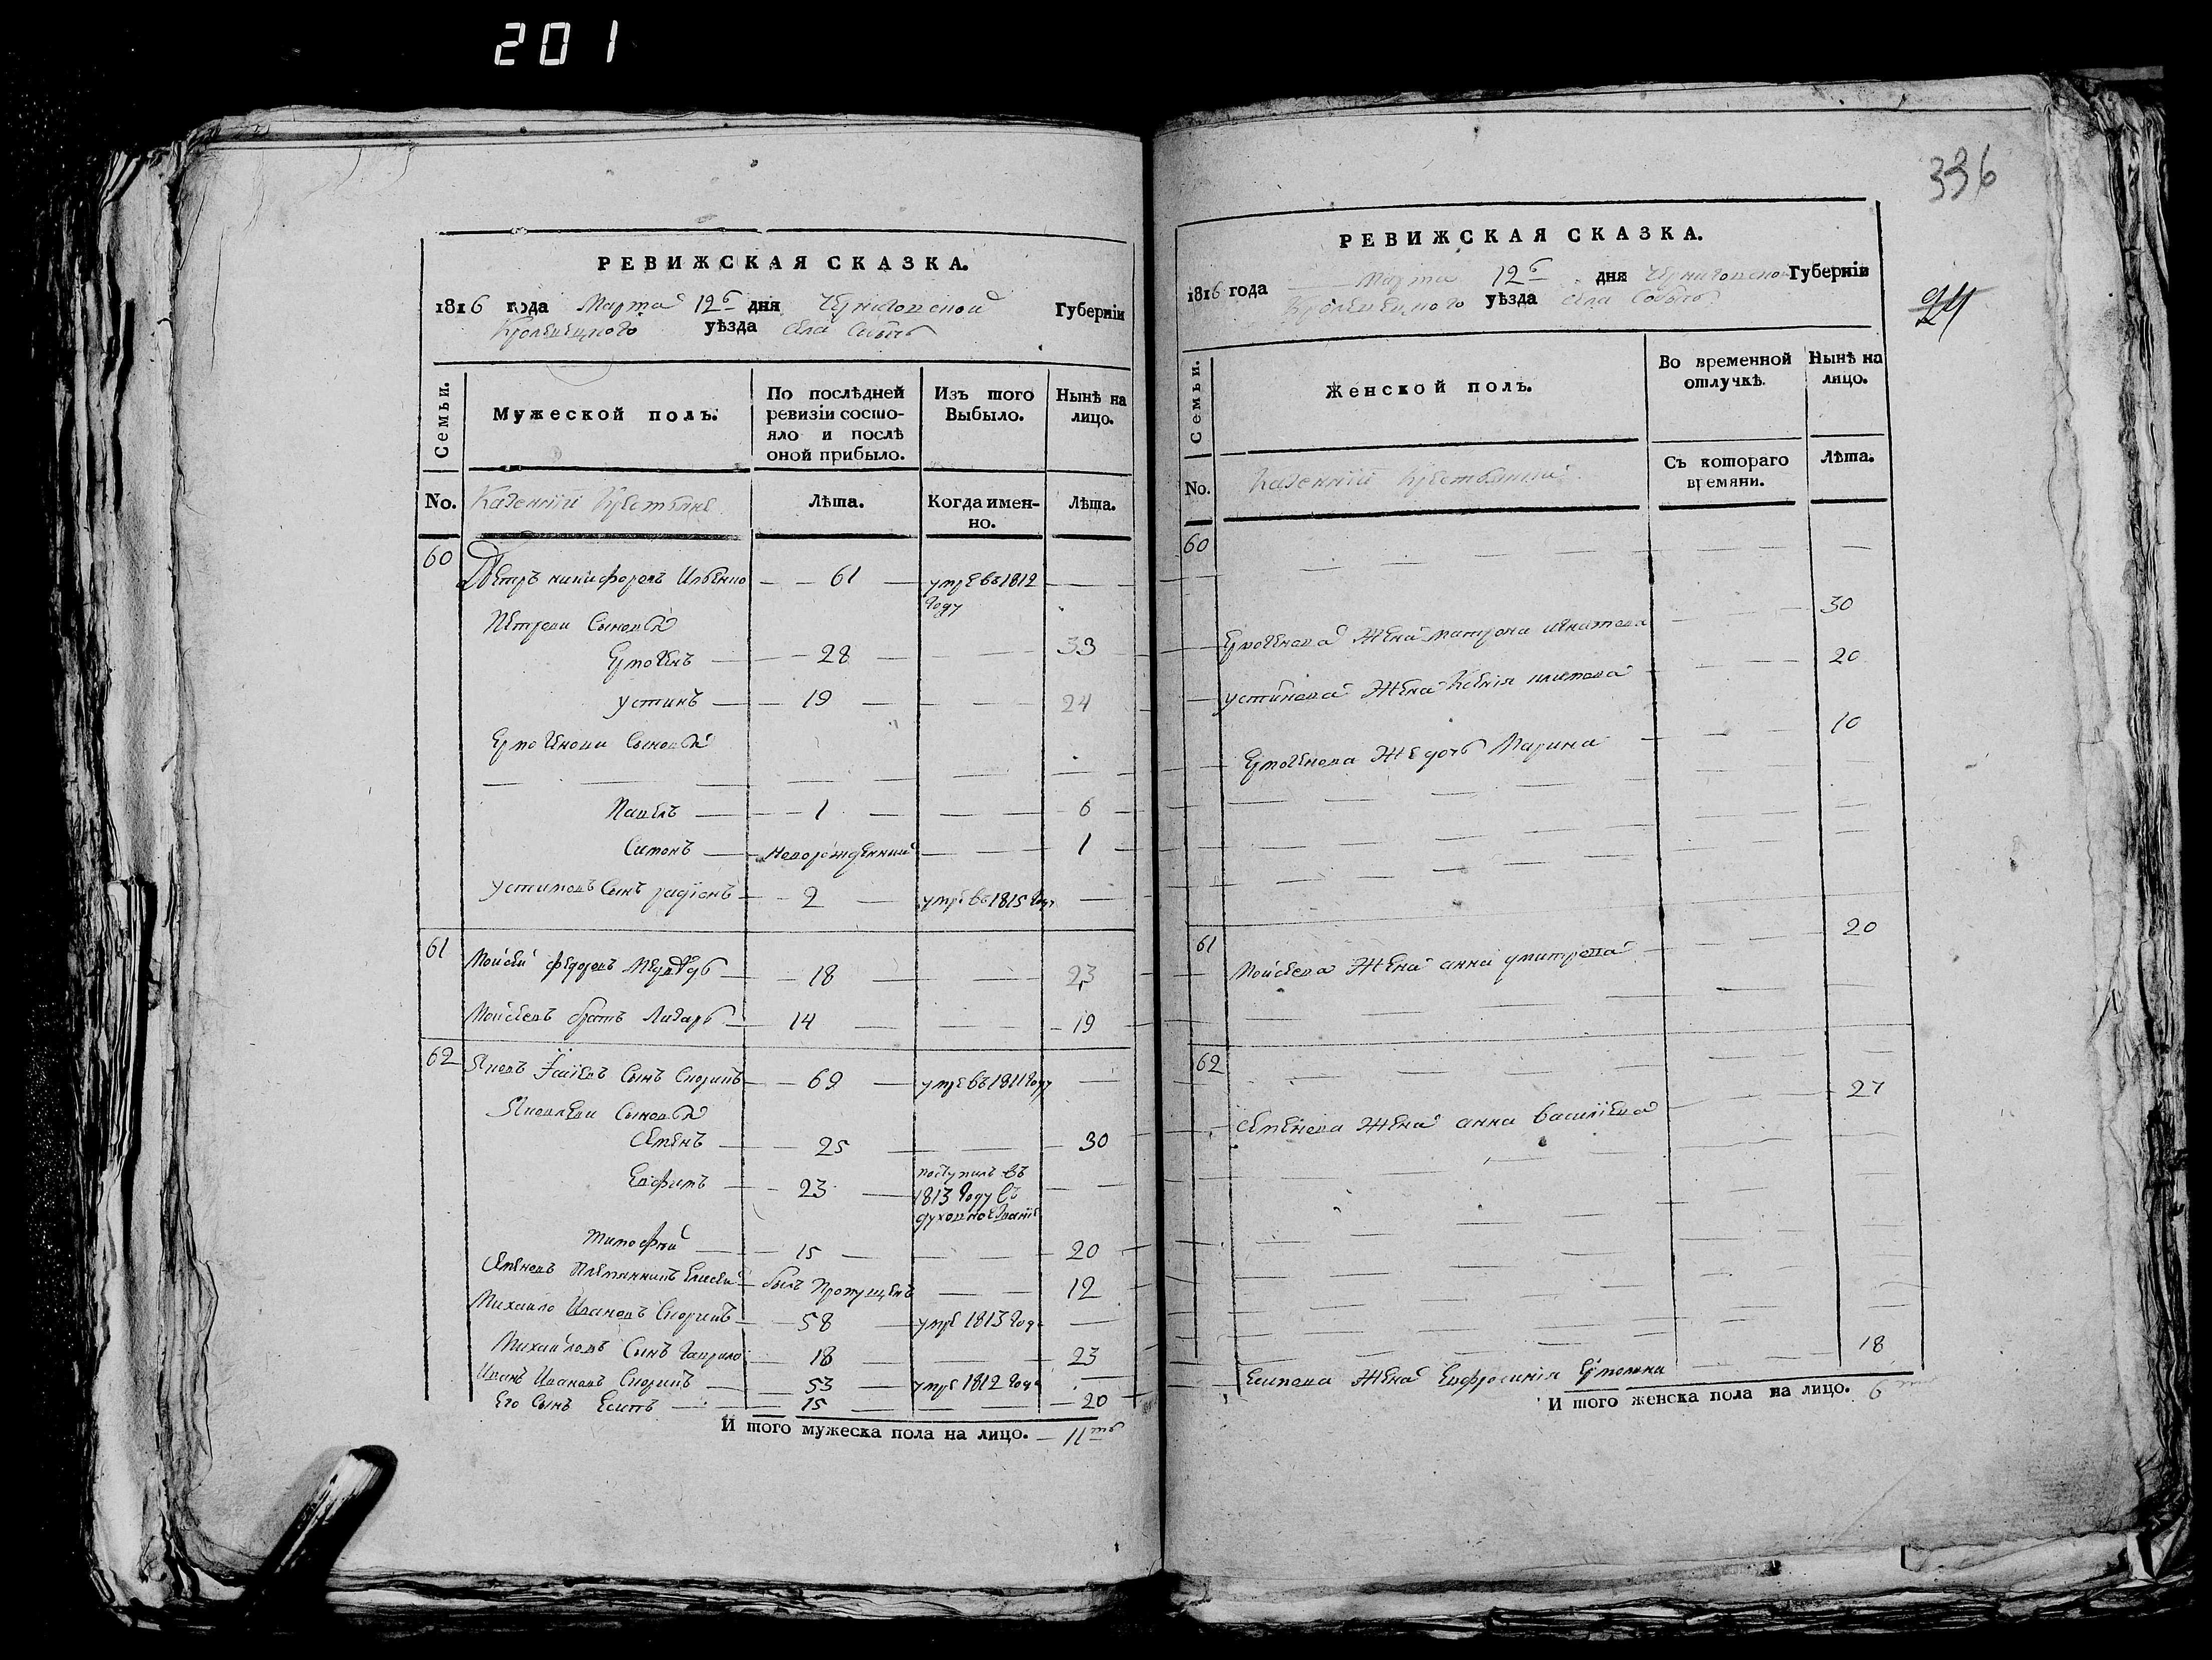 201
РЕВИЖСКАЯ СКАЗКА.
1816 года Марта 12 дня Черниговской Губерніи
Кролевецкого уѣзда села Собычь
Семьи.
Мужеской полъ.
По послѣдней ревизіи состояло и послѣ оной прибыло.
Изъ того Выбыло.
Нынѣ на лицо.
No. Казенніи Крестьяне
Лѣта.
Когда именно.
Лѣта.
60
Петръ никифоровъ Ильенко 61 умре въ 1812 году
Петрови Сыновья
Ермогенъ 28 33
устинъ 19 24
Ермогенови Сыновья
Павелъ 1 6
Симонъ Новорожденний 1
устиновъ Сынъ радіонъ 2 умре въ 1815 году
61 Мойсей федоровъ Медведь 18 23
Мойсеевъ братъ Лазарь 14 19
62 Яковъ Сынъ 69 умре въ 1811 году
Яковлеви Сыновья
Семенъ 25 30
Евфимъ 23 поступилъ въ 1813 году въ духовное званіе
тимофей 15 20
Семеновъ Племянникъ Елисей былъ Пропущенъ 12
Михайло Ивановъ 58 умре 1813 года
Михайловъ Сынъ гаврило 18 23
Иванъ Ивановъ 53 умре 1812 года
Его Сынъ Есипъ 15 20
И того мужеска пола на лицо. 11ть
336
24
РЕВИЖСКАЯ СКАЗКА.
1816 года Марта 12 дня Черниговской Губерніи
Кролевецкого уѣзда села Собычь
Семьи.
Женской полъ.
Во временной отлучкѣ.
Нынѣ на лицо.
No. Казенніи Крестьянки
Съ котораго времяни.
Лѣта.
60
Ермогенова Жена матрона игнатова 30
устинова Жена Ксенія 20
Ермогенова Же дочь Марина 10
61
Мойсеева Жена анна дмитрева 20
62
Семенова Жена анна василіева 27
Есипова Жена Евфросинія 18
И того женска пола на лицо. 6